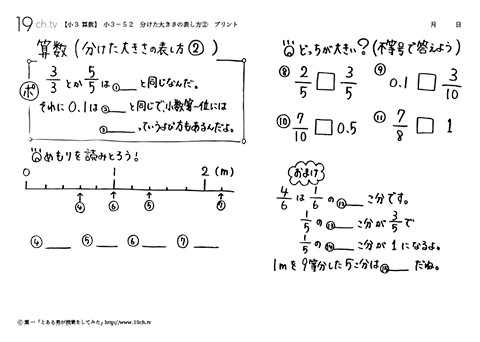 19ch.tv 【小3 算数】 小3-52 分けた大きさの表し方② プリント 月 日
算数(分けた大きさの表し方②)
ポ 3/3 とか 5/5 は ① と同じなんだ。
それに 0.1は ② と同じで、小数第一位には
③ っていうよび方もあるんだよ。
めもりを読みとろう!
0 1 2 (m)
④ ⑥ ⑤ ⑦
④ ⑤ ⑥ ⑦
どっちが大きい?(不等号で答えよう)
⑧ 2/5 □ 3/5 ⑨ 0.1 □ 3/10
⑩ 7/10 □ 0.5 ⑪ 7/8 □ 1
おまけ
4/6 は 1/6 の ⑫ こ分です。
1/5 の ⑬ こ分が 3/5 で
1/5 の ⑭ こ分が 1になるよ。
1mを9等分した5こ分は ⑮ だね。
Ⓒ 葉一「とある男が授業をしてみた」http://www.19ch.tv